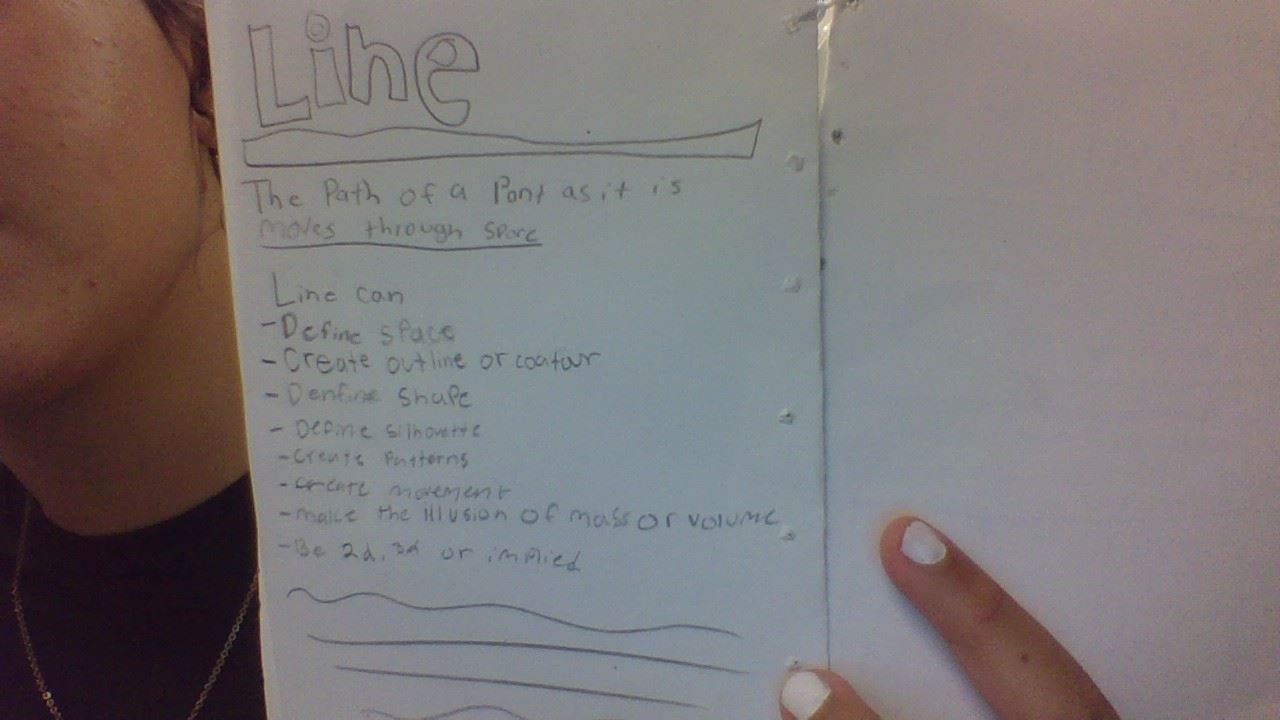 Line
The Path of a Pont as it is
moves through space
Line can
- Define space
- Create outline or contour
- Denfine shape
- Define silhovette
- Create Patterns
- Create movement
- make the illusion of mass or volume
- Be 2d, 3d or implied